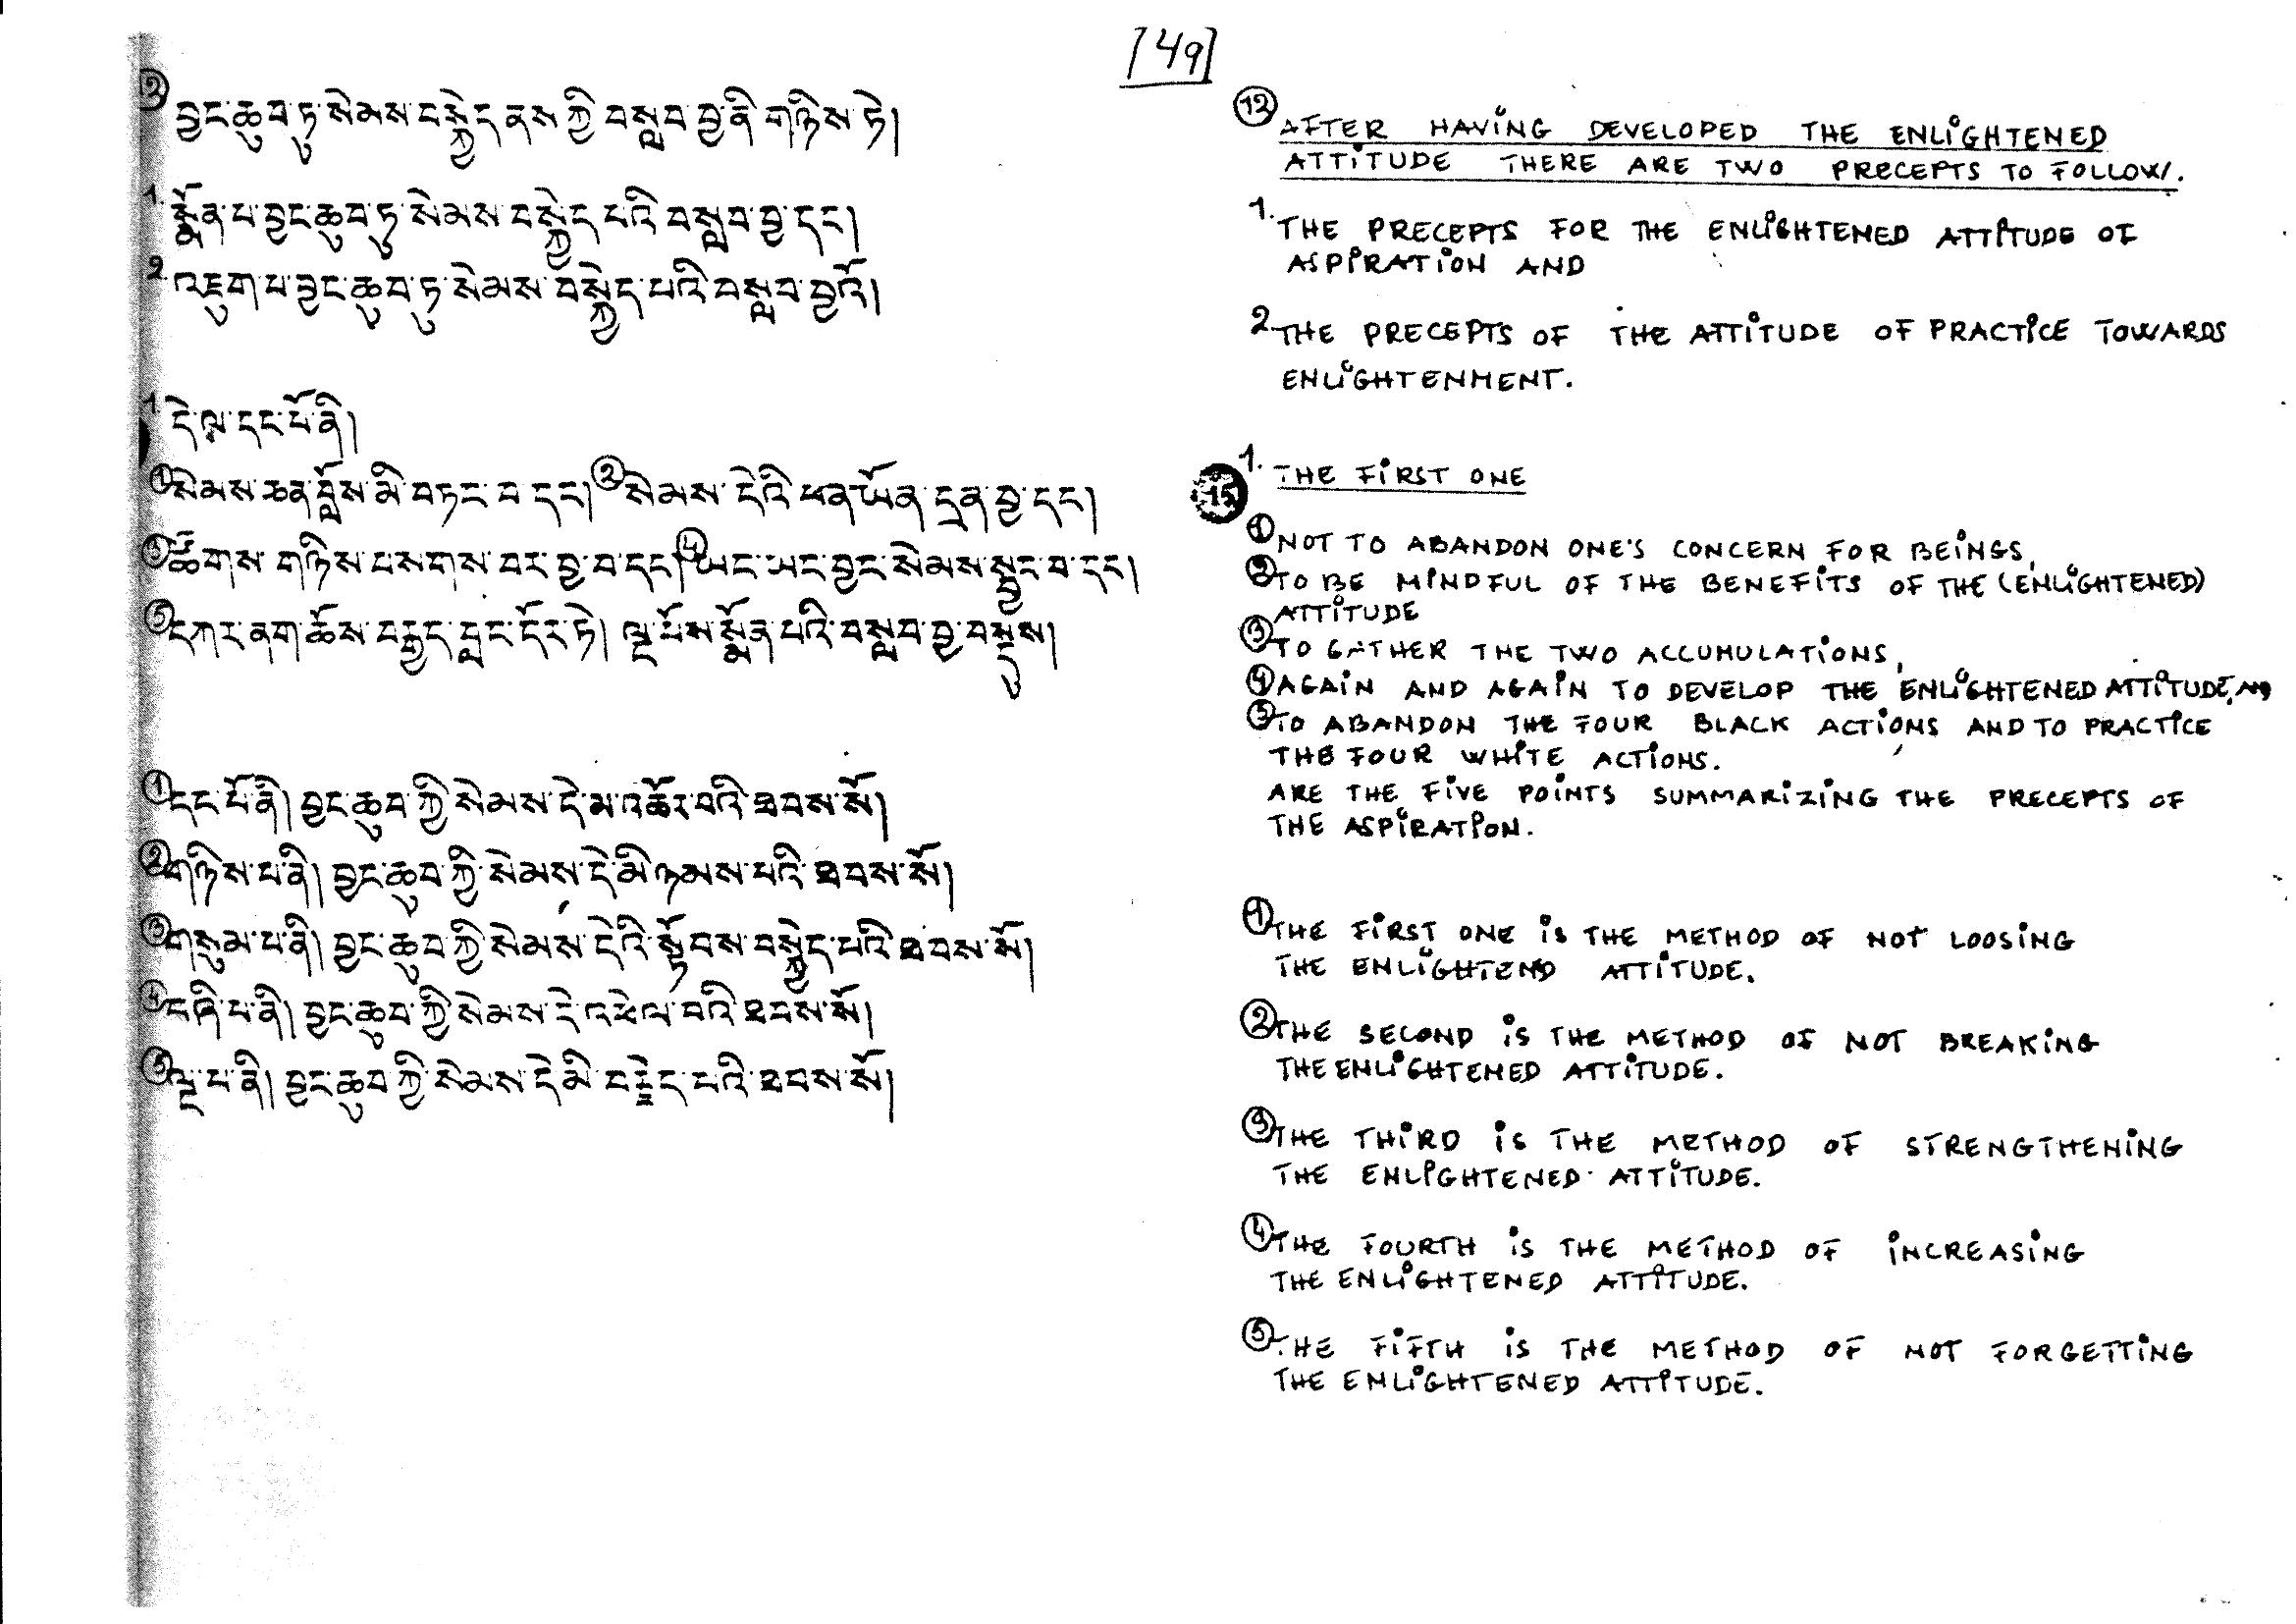 [49]
② བྱང་ཆུབ་ཏུ་སེམས་བསྐྱེད་ནས་ཀྱི་བསླབ་བྱ་ནི་གཉིས་ཏེ།
1. སྨོན་པ་བྱང་ཆུབ་ཏུ་སེམས་བསྐྱེད་པའི་བསླབ་བྱ་དང་།
2. འཇུག་པ་བྱང་ཆུབ་ཏུ་སེམས་བསྐྱེད་པའི་བསླབ་བྱའོ།
1. དེ་ལ་དང་པོ་ནི།
① སེམས་ཅན་བློས་མི་བཏང་བ་དང་། ② སེམས་དེའི་ཕན་ཡོན་དྲན་བྱ་དང་།
③ ཚོགས་གཉིས་བསགས་པར་བྱ་བ་དང་། ④ ཡང་ཡང་བྱང་སེམས་སྦྱང་བ་དང་།
⑤ དཀར་ནག་ཆོས་བརྒྱད་བླང་དོར་ཏེ། ལྔ་པོས་སྨོན་པའི་བསླབ་བྱ་བསྡུས།
① དང་པོ་ནི། བྱང་ཆུབ་ཀྱི་སེམས་དེ་མ་འཆོར་བའི་ཐབས་སོ།
② གཉིས་པ་ནི། བྱང་ཆུབ་ཀྱི་སེམས་དེ་མི་ཉམས་པའི་ཐབས་སོ།
③ གསུམ་པ་ནི། བྱང་ཆུབ་ཀྱི་སེམས་དེའི་སྟོབས་བསྐྱེད་པའི་ཐབས་སོ།
④ བཞི་པ་ནི། བྱང་ཆུབ་ཀྱི་སེམས་དེ་འཕེལ་བའི་ཐབས་སོ།
⑤ ལྔ་པ་ནི། བྱང་ཆུབ་ཀྱི་སེམས་དེ་མི་བརྗེད་པའི་ཐབས་སོ།
⑫ AFTER HAVING DEVELOPED THE ENLIGHTENED
ATTITUDE THERE ARE TWO PRECEPTS TO FOLLOW.
1. THE PRECEPTS FOR THE ENLIGHTENED ATTITUDE OF
ASPIRATION AND
2. THE PRECEPTS OF THE ATTITUDE OF PRACTICE TOWARDS
ENLIGHTENMENT.
15 1. THE FIRST ONE
① NOT TO ABANDON ONE'S CONCERN FOR BEINGS,
② TO BE MINDFUL OF THE BENEFITS OF THE (ENLIGHTENED)
ATTITUDE
③ TO GATHER THE TWO ACCUMULATIONS,
④ AGAIN AND AGAIN TO DEVELOP THE ENLIGHTENED ATTITUDE, AND
⑤ TO ABANDON THE FOUR BLACK ACTIONS AND TO PRACTICE
THE FOUR WHITE ACTIONS.
ARE THE FIVE POINTS SUMMARIZING THE PRECEPTS OF
THE ASPIRATION.
① THE FIRST ONE IS THE METHOD OF NOT LOOSING
THE ENLIGHTEND ATTITUDE.
② THE SECOND IS THE METHOD OF NOT BREAKING
THE ENLIGHTENED ATTITUDE.
③ THE THIRD IS THE METHOD OF STRENGTHENING
THE ENLIGHTENED ATTITUDE.
④ THE FOURTH IS THE METHOD OF INCREASING
THE ENLIGHTENED ATTITUDE.
⑤ THE FIFTH IS THE METHOD OF NOT FORGETTING
THE ENLIGHTENED ATTITUDE.